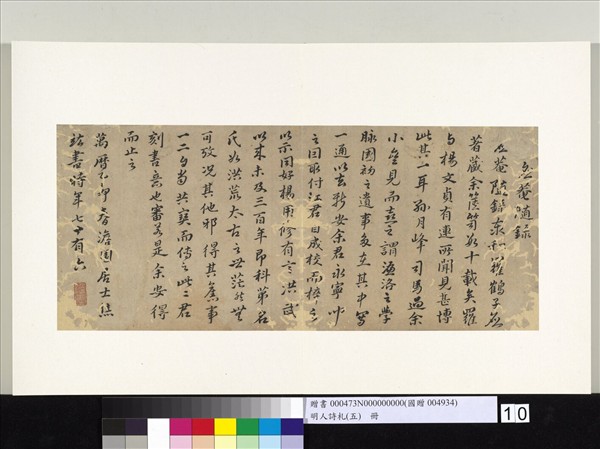 应菴隨錄
应菴隨錄泰和羅鶴子應
著藏余篋笥幾十載矣羅
與楊文貞有連所聞見甚博
此其一耳孫月峰司馬過余
小齋見而喜之謂濂洛之學
脉國初之遺事多在其中寫
一通以去新安余君永寧叩
之因取付江君自成校而梓之
以示同好楊用修有言洪武
以來未及三百年即科第名
氏如洪荒太古之世茫然無
可攷況其他邪得其舊事
一二句當共寶而傳之此二君
刻書意也審若是余安得
而止之
萬曆春澹園居士焦
竑書時年七十有六
贈書 000473N000000000(國贈 004934)
明人詩札(五) 冊
10